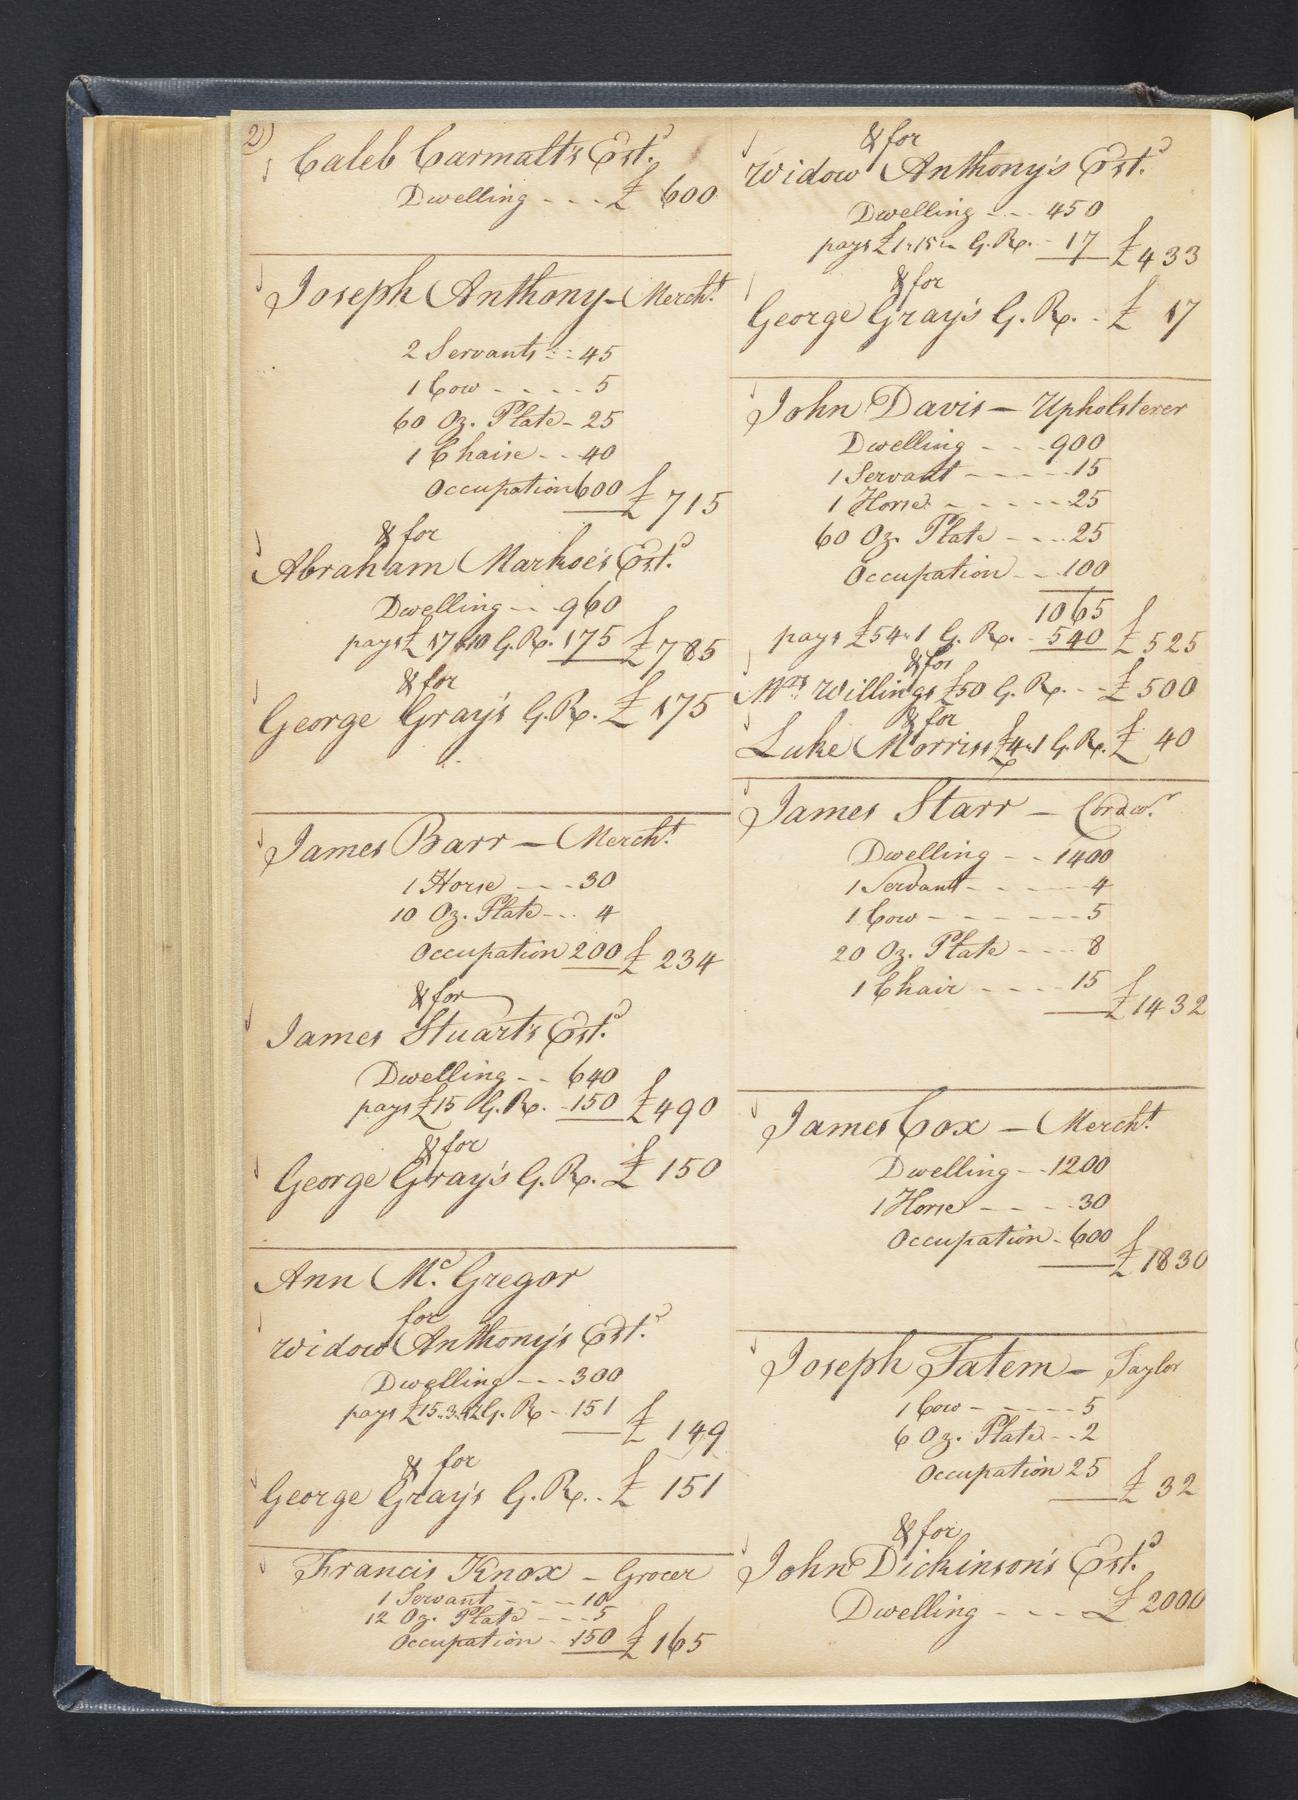 2)
Caleb Carmalt's Estd.
Dwelling - - - £ 600
Joseph Anthony - Mercht.
2 Servants - - 45
1 Cow - - - - 5
60 Oz. Plate - 25
1 Chaise - - 40
Occupation 600 £ 715
& for
Abraham Markoe's Estd.
Dwelling - - 960
pays £17"10 G. R. 175 £ 785
& for
George Gray's G. R. £ 175
James Barr - Mercht.
1 Horse - - - 30
10 Oz. Plate - - 4
Occupation 200 £ 234
& for
James Stuart's Estd.
Dwelling - - 640
pays £15 G. R. - 150 £ 490
& for
George Gray's G. R. £ 150
Ann Mc. Gregor
for
Widow Anthony's Estd.
Dwelling - - - 300
pays G. R - 151 £ 149
& for
George Gray's G. R. - £ 151
Francis Knox - Grocer
1 Servant - - - 10
12 Oz. Plate - - - 5
Occupation - 150 £ 165
& for
Widow Anthony's Estd.
Dwelling - - - 450
pays £1"15"- G. R. - 17 £ 433
& for
George Gray's G. R. - £ 17
John Davis - Upholsterer
Dwelling - - - 900
1 Servant - - - - 15
1 Horse - - - - - 25
60 Oz. Plate - - - 25
Occupation - - 100
1065
pays £54"1 G. R. - 540 £ 525
& for
Mrs. Willings £50 G. R. - - £ 500
& for
Luke Morriss £4"1 G. R. £ 40
James Starr - Cordwr.
Dwelling - - 1400
1 Servant - - - - - 4
1 Cow - - - - - - 5
20 Oz. Plate - - - 8
1 Chair - - - - 15
£ 1432
James Cox - Mercht.
Dwelling - - 1200
1 Horse - - - - 30
Occupation - 600
£ 1830
Joseph Tatem - Taylor
1 Cow - - - - - 5
6 Oz. Plate - - 2
Occupation 25
£ 32
& for
John Dickinson's Estd.
Dwelling - - - £ 2000